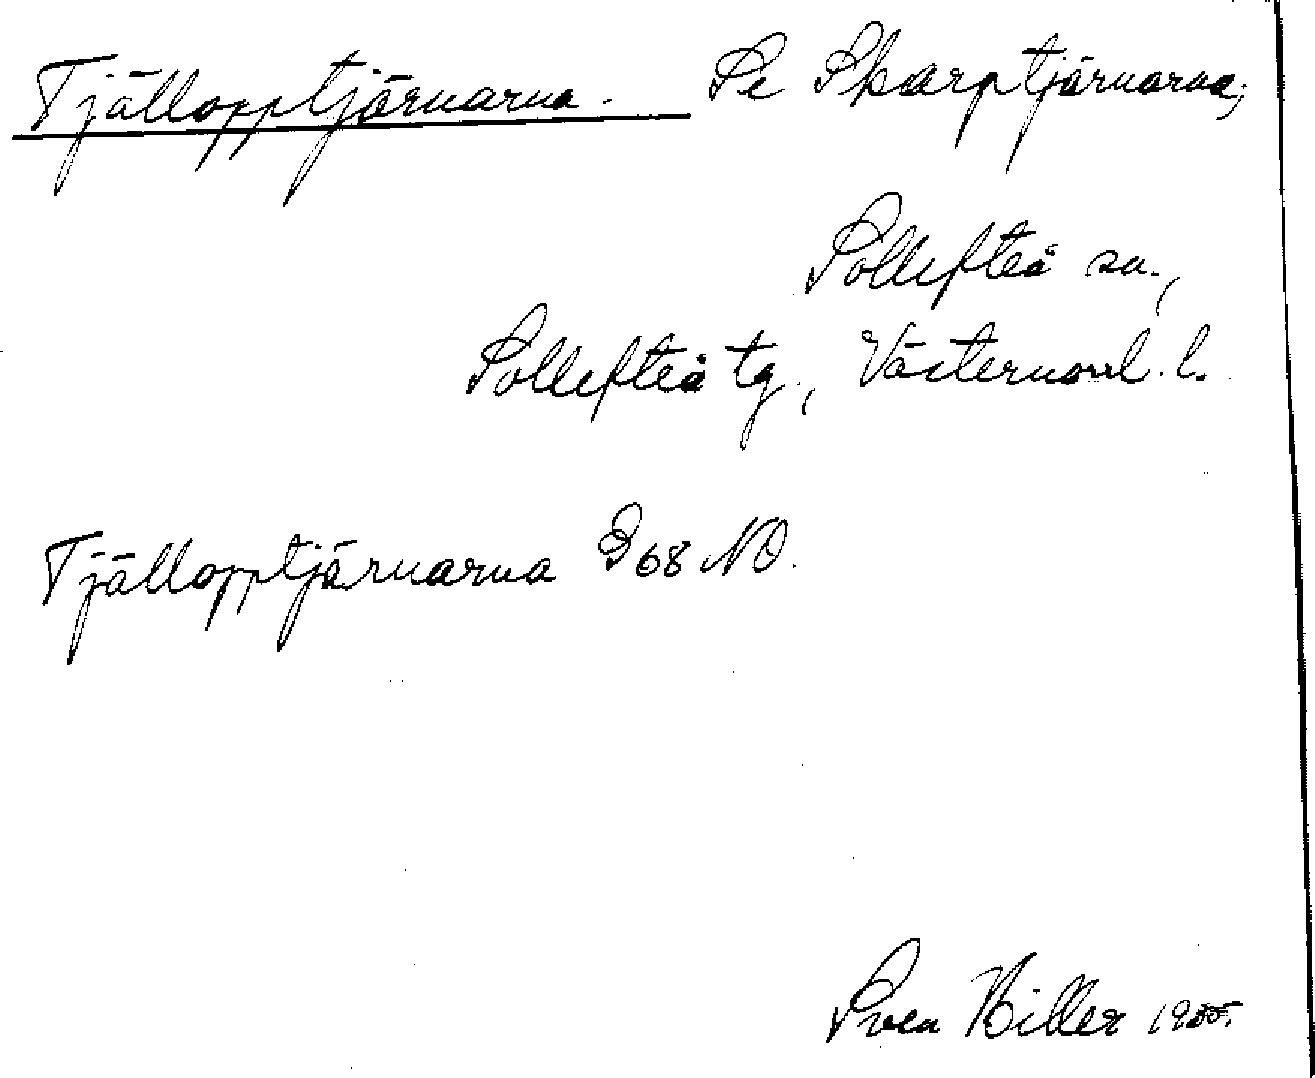 Tjällopptjärnarna. Se Skarptjärnarna;
Sollefteå sn.,
Sollefteå tg., Västernorrl. l.
Tjällopptjärnarna G 68 NO.
Sven Hiller 1955.